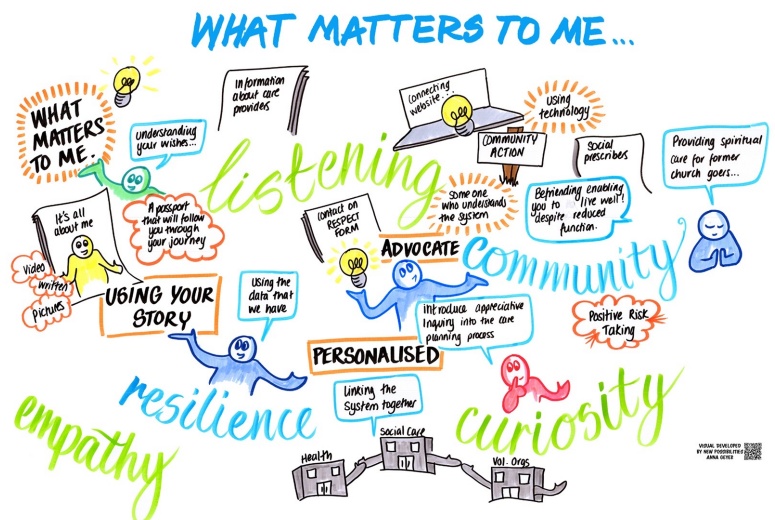 WHAT MATTERS TO ME...
WHAT
MATTERS
TO ME.
understanding
your wishes...
Information
about care
providers
listening
connecting
website...
Using
technology
COMMUNITY
ACTION
Social
prescribers
Providing spiritual
care for former
church goers...
It's all
about me
A passport
that will follow
you through
your journey
Video
written
pictures
USING YOUR
STORY
Using the
data that
we have
contact on
RESPECT
FORM
Some one
who understands
the system
Befriending enabling
you to live well!
despite reduced
function.
ADVOCATE
community
Introduce appreciative
Inquiry into the care
planning process
Positive Risk
Taking
PERSONALISED
resilience
empathy
Linking the
System together
curiosity
Health
Social Care
Vol. Orgs
VISUAL DEVELOPED
BY NEW POSSIBILITIES
ANNA GEYER